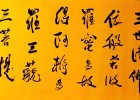 三世諸佛
依般若波
羅蜜多故
得阿耨多
羅三藐
三菩提